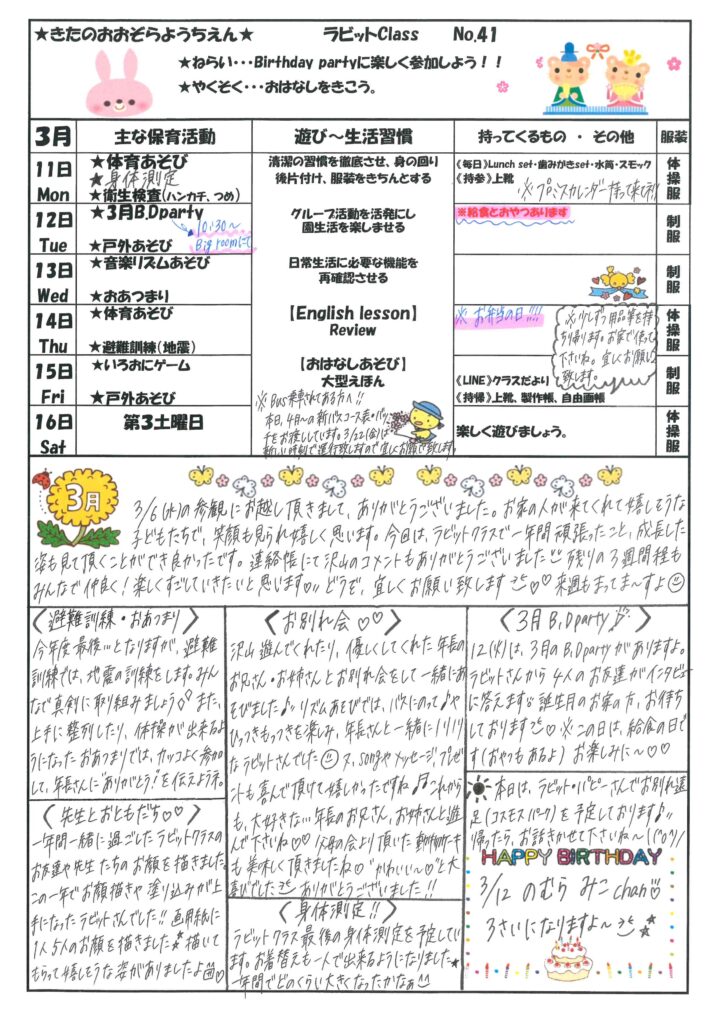 ★きたのおおぞらようちえん★ ラビットClass No.41
★ねらい・・・Birthday partyに楽しく参加しよう！！
★やくそく・・・おはなしをきこう。
3月 主な保育活動 遊び～生活習慣 持ってくるもの ・ その他 服装
11日 Mon
★体育あそび
★身体測定
★衛生検査(ハンカチ、つめ)
清潔の習慣を徹底させ、身の回り
後片付け、服装をきちんとする
《毎日》Lunch set・歯みがきset・水筒・スモック
《持参》上靴
体操服
12日 Tue
★3月B,Dparty
10:30～
Big roomにて
★戸外あそび
グループ活動を活発にし
園生活を楽しませる
※給食とおやつあります
制服
13日 Wed
★音楽リズムあそび
★おあつまり
日常生活に必要な機能を
再確認させる
制服
14日 Thu
★体育あそび
★避難訓練(地震)
【English lesson】
Review
※お弁当の日!!!!
※少しずつ用品等を持
ち帰ります。お家で使って
下さいね。宜しくお願い
致します。
体操服
15日 Fri
★いろおにゲーム
★戸外あそび
【おはなしあそび】
大型えほん
《LINE》クラスだより
《持帰》上靴、製作帳、自由画帳
制服
16日 Sat
第3土曜日
※Bus乗車されてある方へ!!
本日、4月～の新バスコース表・バッ
チをお渡ししています。3/22(金)は
新しい時刻で運行致しますので宜しくお願い致します。
楽しく遊びましょう。
体操服
3月
3/6(水)の参観にお越し頂きまして、ありがとうございました。お家の人が来てくれて嬉しそうな
子どもたちで、笑顔も見られ嬉しく思います。今回は、ラビットクラスで一年間頑張ったこと、成長した
姿も見て頂くことができ良かったです。連絡帳にて沢山のコメントもありがとうございました 残りの3週間程も
みんなで仲良く！楽しくすごしていきたいと思います♡〃どうぞ、宜しくお願い致します♡♡来週もまってま～すよ☺
〈避難訓練・おあつまり〉
今年度最後…となりますが、避難
訓練では、地震の訓練をします。みん
なで真剣に取り組みましょう。また、
上手に整列したり、体操が出来るよ
うになったおあつまりでは、カッコよく参加
して、年長さんに“ありがとう!”を伝えようネ。
〈先生とおともだち♡♡〉
一年間一緒に過ごしたラビットクラスの
お友達や先生たちのお顔を描きました。
この一年でお顔描きや塗り込みが上
手になったラビットさんでした!!画用紙に
1人5人のお顔を描きました★描いて
もらって嬉しそうな姿がありましたよ♡
〈お別れ会♡♡〉
沢山遊んでくれたり、優しくしてくれた年長の
お兄さん・お姉さんとお別れ会をして一緒にあ
そびました♪リズムあそびでは、バスにのって♪や
ひっつきもっつきを楽しみ、年長さんと一緒にノリノリ
なラビットさんでした☺ 又、songやメッセージ、プレゼ
ントも喜んで頂けて嬉しかったですね♬これから
も、大好きな…年長のお兄さん、お姉さんと遊
んで下さいね♡♡父母の会より頂いた動物ケーキ
も美味しく頂きましたね♡“かわいい～♡”と大
喜びでした ありがとうございました!!
〈身体測定!!〉
ラビットクラス最後の身体測定を予定してい
ます。お着替えも一人で出来るようになりました★
一年間でどのくらい大きくなったかなぁ
〈3月B,Dparty〉
12(火)は、3月のB,Dpartyがありますよ。
ラビットさんから4人のお友達がインタビュー
に答えます 誕生月のお家の方、お待ち
しております♡ ※この日は、給食の日で
す(おやつもあるよ) お楽しみに～♡♡
本日は、ラビット・パピーさんでお別れ遠
足(コスモスパーク)を予定しております♪
帰ったら、お話きかせて下さいね～!(^o^)/
HAPPY BiRTHDAY
3/12 のむら みこchan♡
3さいになりますよ～★